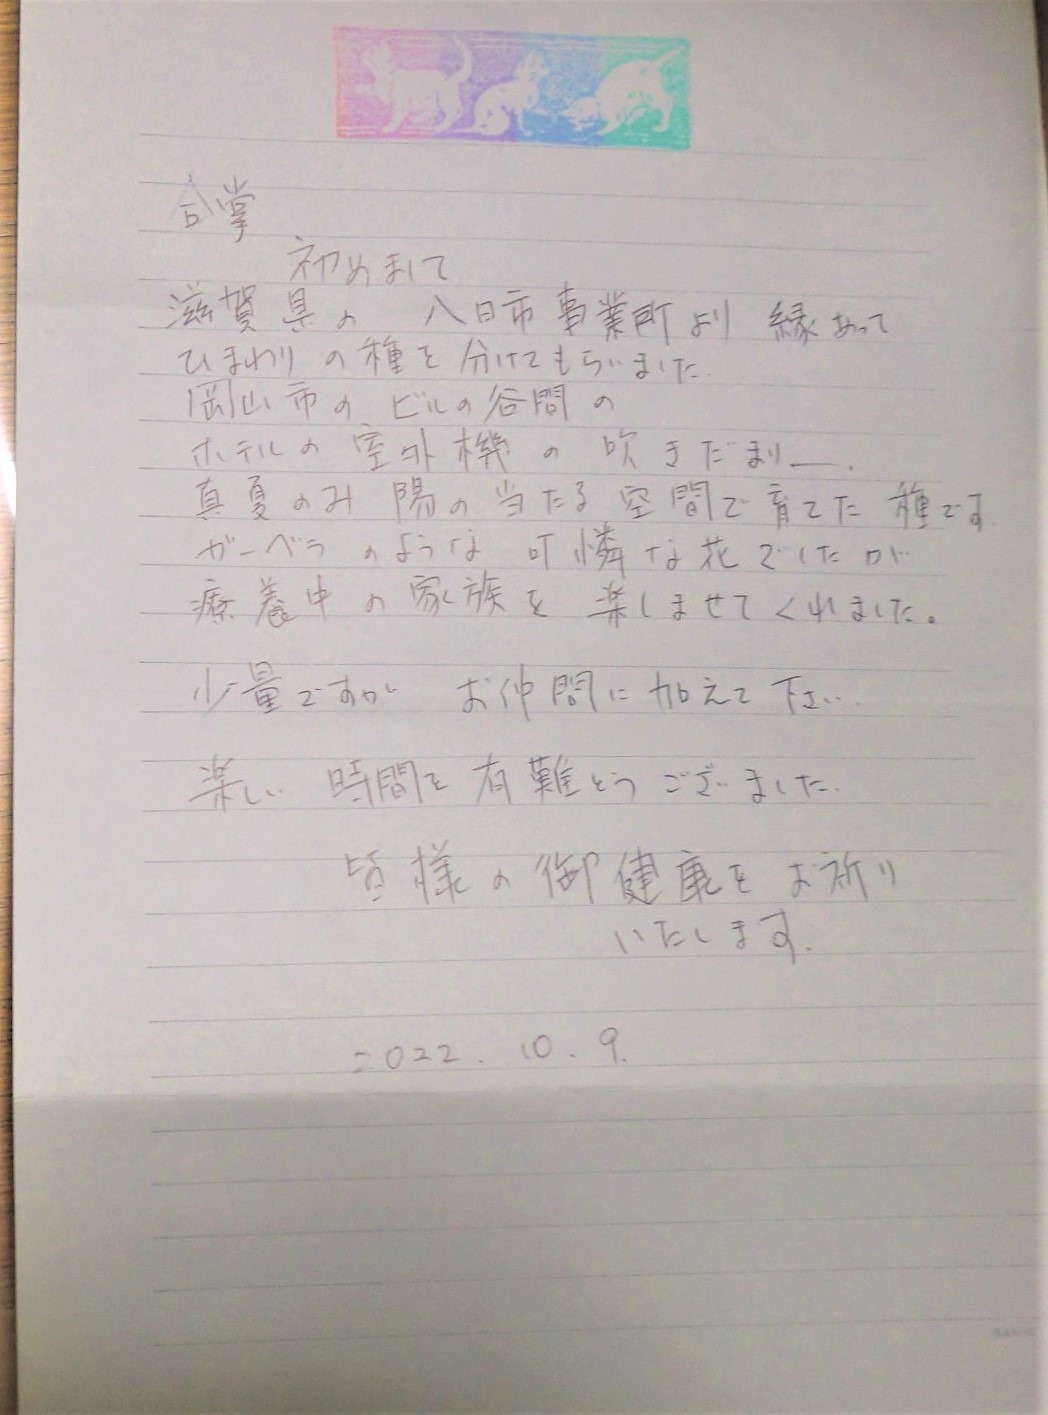 合掌
初めまして
滋賀県の 八日市事業所より 縁あって
ひまわりの種を分けてもらいました.
岡山市の ビルの谷間の
ホテルの室外機の吹きだまり―.
真夏のみ 陽の当たる空間で育てた種です.
ガーベラのような可憐な花でしたが
療養中の家族を楽しませてくれました。
少量ですが お仲間に加えて下さい..
楽しい時間を有難とうございました.
皆様の御健康をお祈り
いたします.
2022. 10. 9.